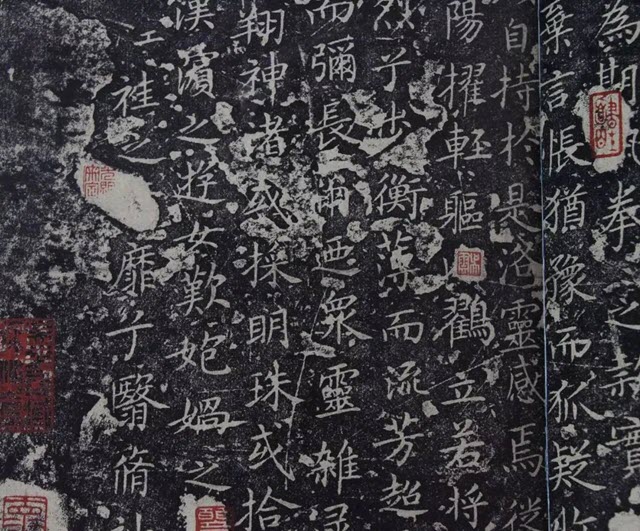 為期之款實
棄言悵猶豫而狐疑收
自持於是洛靈感焉徙
陽擢輕軀以鶴立若將
烈兮步衡薄而流芳超
而彌長爾迺眾靈雜
翔神渚或採明珠或拾
漢濱之遊女歎匏媧之
袿之靡兮翳脩